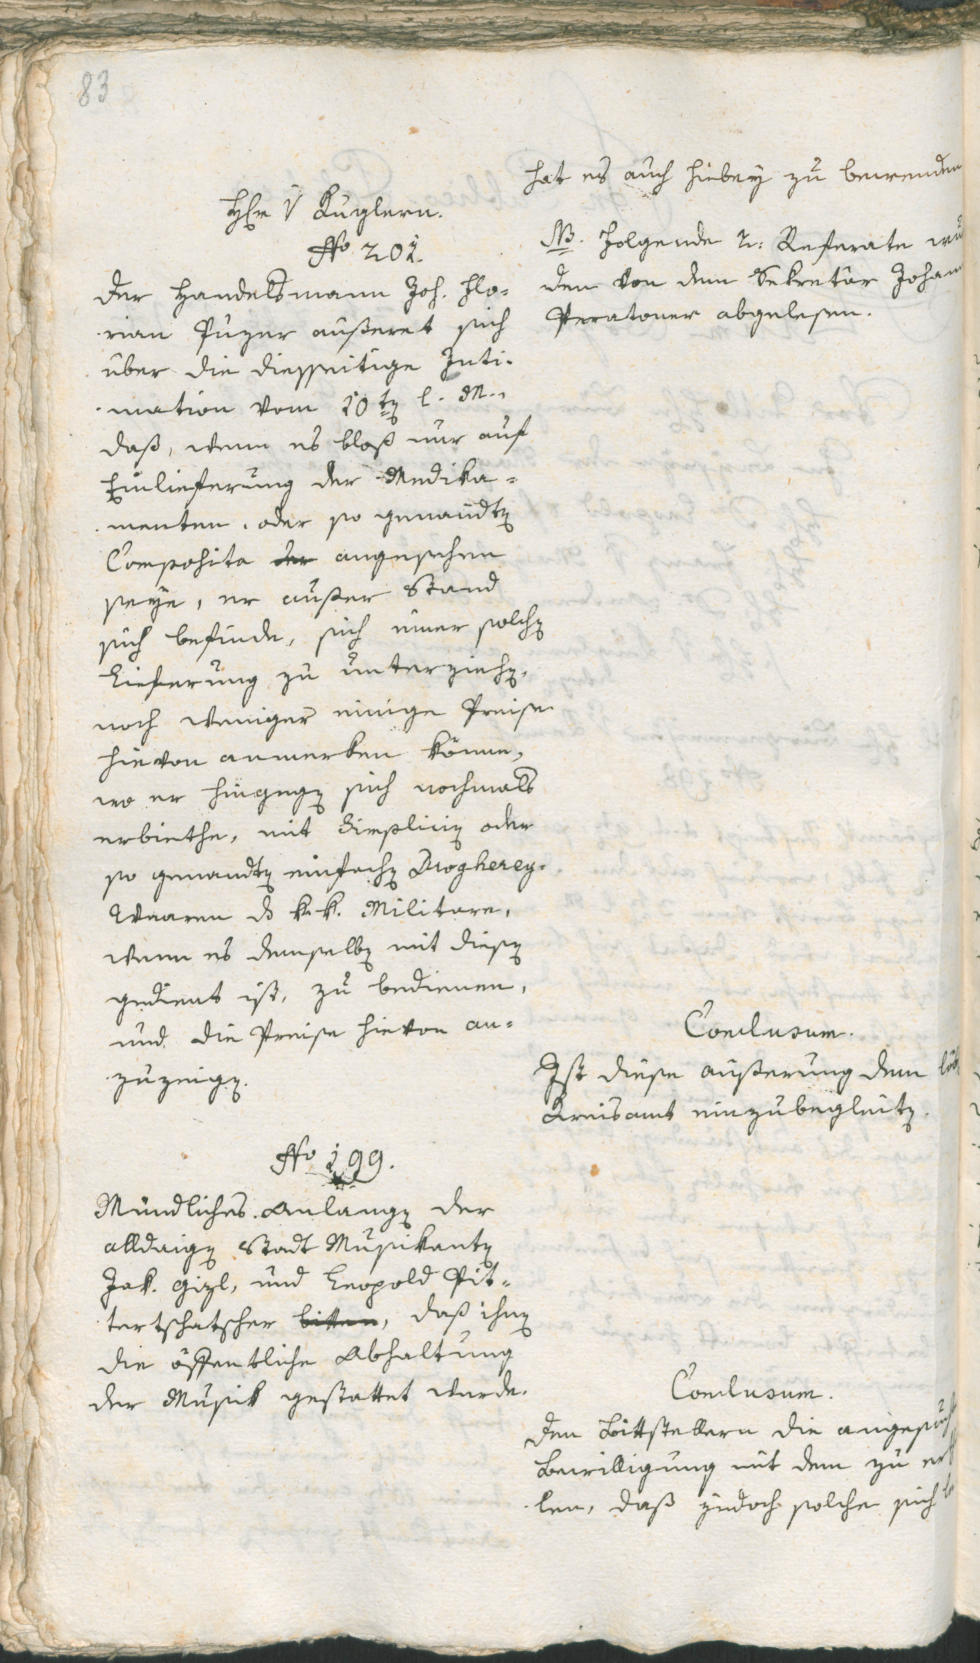 83
Hr v Kuglern.
No 201.
Der Handelsmann Joh. Flo-
rian Puzer äußeret sich
über die diesseitige Inti-
mation vom 10tn l. M.,
daß, wenn es bloß nur auf
Einlieferung der Medika-
menten, oder so genandtn
Composita der angesehen
seye, er außer Stand
sich befinde, sich einer solchn
Lieferung zu unterziehn,
noch weniger einige Preise
hievon anmerken könne,
wo er hingegn sich nochmals
erbiethe, mit Simplicin oder
so genandtn einfachn Drogherey-
Waaren ds k. k. Militare,
wenn es demselbn mit diesn
gedient ist, zu bedienen,
und die Preise hievon an-
zuzeign.
No 199.
Mündliches Anlangn der
alldaign Stadt Musikantn
Jak. Gizl, und Leopold Pit-
tertschatscher bitten, daß ihnn
die öffentliche Abhaltung
der Musik gestattet werde.
hat es auch hiebey zu bewenden
NB. Folgende 2: Referate wur
den von dem Sekretär Johann
Peratoner abgelesen.
Conclusum.
Ist diese äußerung dem löb
Kreisamt einzubegleitn.
Conclusum.
Den Bittstellern die angesuch
Bewilligung mit dem zu er
len, daß jedoch solche sich